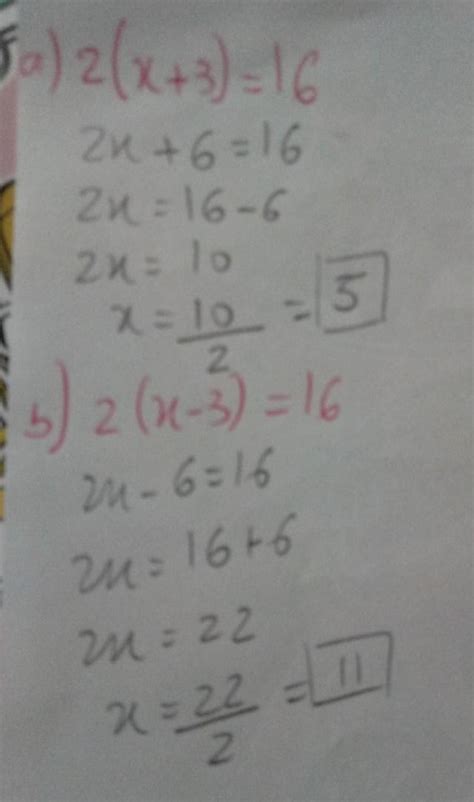 a) 2(x+3)=16
2x+6=16
2x=16-6
2x=10
x=10/2 =5
b) 2(x-3)=16
2x-6=16
2x=16+6
2x=22
x=22/2 =11